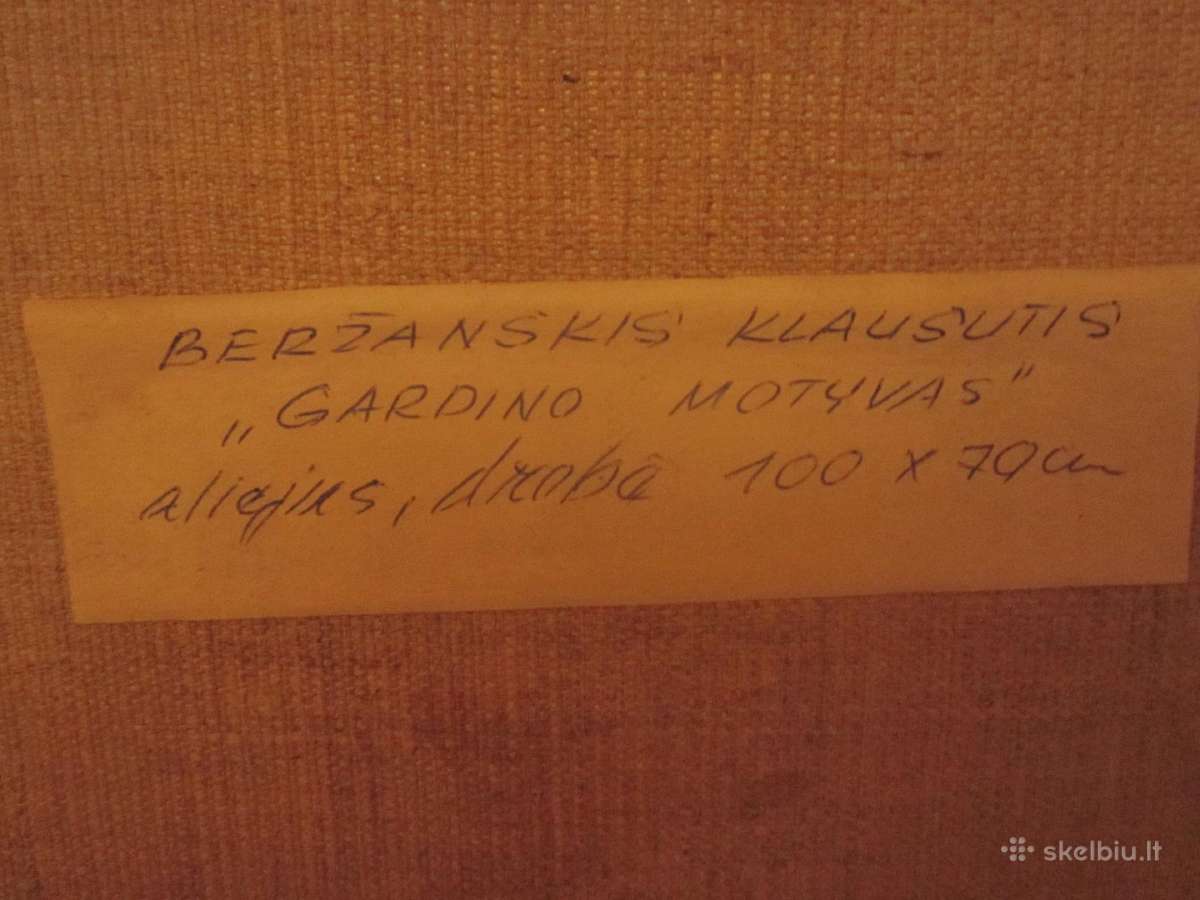 BERŽANSKIS KLAUSUTIS
„GARDINO MOTYVAS"
aliejus, drobė 100 x 70 cm
skelbiu.lt